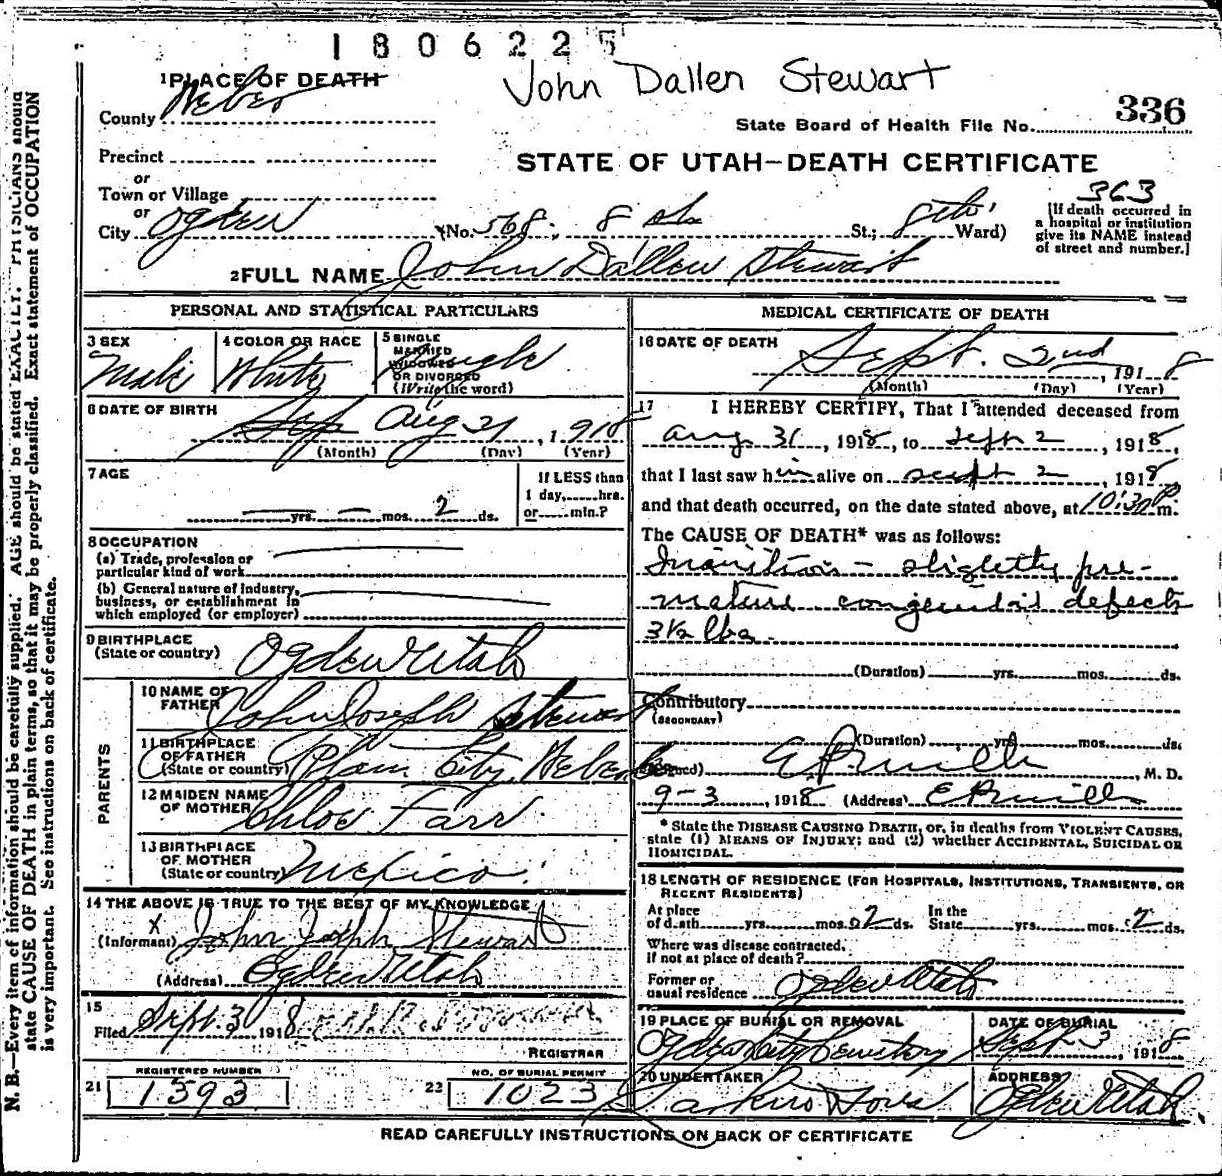 1806225
John Dallen Stewart
1 PLACE OF DEATH
County Weber
336
State Board of Health File No.
Precinct
or
Town or Village
or
City Ogden
STATE OF UTAH—DEATH CERTIFICATE
363
(No. 568, 8 th St.; 8th Ward)
[If death occurred in
a hospital or institution
give its NAME instead
of street and number.]
2 FULL NAME John Dallen Stewart
PERSONAL AND STATISTICAL PARTICULARS
3 SEX
Male
4 COLOR OR RACE
White
5 SINGLE
MARRIED
WIDOWED
OR DIVORCED
(Write the word)
Single
6 DATE OF BIRTH
Sep Aug 31, 1918
(Month) (Day) (Year)
7 AGE
yrs. mos. 2 ds.
If LESS than
1 day, hrs.
or min.?
8 OCCUPATION
(a) Trade, profession or
particular kind of work
(b) General nature of industry,
business, or establishment in
which employed (or employer)
9 BIRTHPLACE
(State or country) Ogden Utah
PARENTS
10 NAME OF
FATHER John Joseph Stewart
11 BIRTHPLACE
OF FATHER
(State or country) Plain City, Weber
12 MAIDEN NAME
OF MOTHER Chloe Farr
13 BIRTHPLACE
OF MOTHER
(State or country) Mexico.
14 THE ABOVE IS TRUE TO THE BEST OF MY KNOWLEDGE
X
(Informant) John Joseph Stewart
(Address) Ogden Utah
15
Filed Sept. 3 1918
REGISTRAR
REGISTERED NUMBER
21 1593
NO. OF BURIAL PERMIT
22 1023
MEDICAL CERTIFICATE OF DEATH
16 DATE OF DEATH
Sept. 2nd, 1918
(Month) (Day) (Year)
17 I HEREBY CERTIFY, That I attended deceased from
Aug 31, 1918, to Sept 2, 1918,
that I last saw him alive on Sept 2, 1918
and that death occurred, on the date stated above, at 10:30 P.m.
The CAUSE OF DEATH* was as follows:
Inanition – slightly pre-
mature congenital defects
3½ lbs.
(Duration) yrs. mos. ds.
Contributory
(SECONDARY)
(Duration) yrs. mos. ds.
(Signed) E. P. Mills, M. D.
9-3, 1918 (Address) E P Mills
* State the DISEASE CAUSING DEATH, or, in deaths from VIOLENT CAUSES,
state (1) MEANS OF INJURY; and (2) whether ACCIDENTAL, SUICIDAL OR
HOMICIDAL.
18 LENGTH OF RESIDENCE (FOR HOSPITALS, INSTITUTIONS, TRANSIENTS, OR
RECENT RESIDENTS)
At place
of death yrs. mos. 2 ds.
In the
State yrs. mos. 2 ds.
Where was disease contracted,
if not at place of death?
Former or
usual residence Ogden Utah
19 PLACE OF BURIAL OR REMOVAL
Ogden City Cemetery
DATE OF BURIAL
Sept 3, 1918
20 UNDERTAKER
Larkin & Sons
ADDRESS
Ogden Utah
READ CAREFULLY INSTRUCTIONS ON BACK OF CERTIFICATE
N. B.—Every item of information should be carefully supplied. AGE should be stated EXACTLY. PHYSICIANS should
state CAUSE OF DEATH in plain terms, so that it may be properly classified. Exact statement of OCCUPATION
is very important. See instructions on back of certificate.